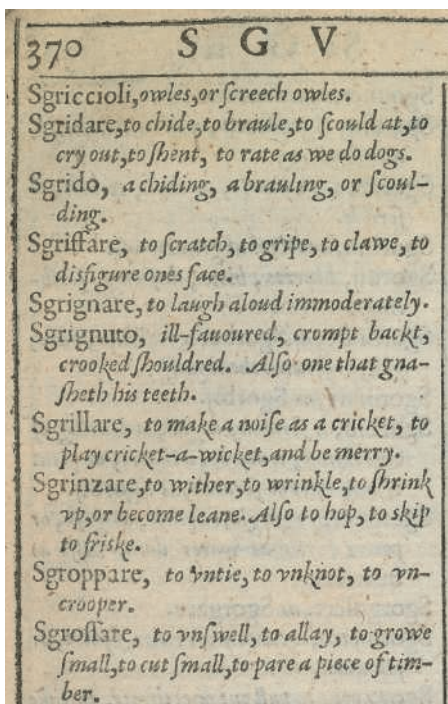 370 S G V
Sgriccioli, owles, or ſcreech owles.
Sgridare, to chide, to braule, to ſcould at, to
cry out, to ſhent, to rate as we do dogs.
Sgrido, a chiding, a brauling, or ſcoul-
ding.
Sgriffare, to ſcratch, to gripe, to clawe, to
disfigure ones face.
Sgrignare, to laugh aloud immoderately.
Sgrignuto, ill-fauoured, crompt backt,
crooked ſhouldred. Alſo one that gna-
ſheth his teeth.
Sgrillare, to make a noiſe as a cricket, to
play cricket-a-wicket, and be merry.
Sgrinzare, to wither, to wrinkle, to ſhrink
vp, or become leane. Alſo to hop, to skip
to friske.
Sgroppare, to vntie, to vnknot, to vn-
crooper.
Sgroſſare, to vnſwell, to allay, to growe
ſmall, to cut ſmall, to pare a piece of tim-
ber.